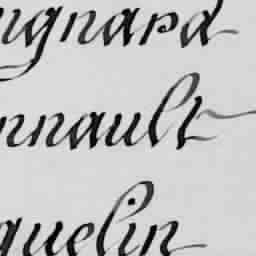 ugnard
nnault
quelin